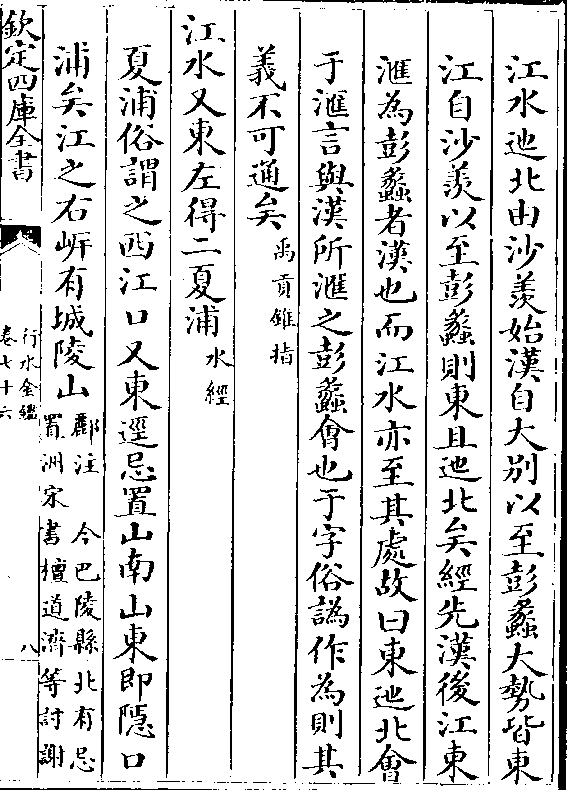 江水迤北由沙羨始漢自大别以至彭蠡大勢皆東
江自沙羨以至彭蠡則東且迤北矣經先漢後江東
滙為彭蠡者漢也而江水亦至其處故曰東迤北會
于滙言與漢所滙之彭蠡會也于字俗譌作為則其
義不可通矣禹貢錐指
江水又東左得二夏浦水經
夏浦俗謂之西江口又東逕忌置山南山東即隠口
浦矣江之右岸有城陵山酈注 今巴陵縣北有忌
置洲宋書檀道濟等討謝
欽定四庫全書
行水金鑑
卷七十六
八